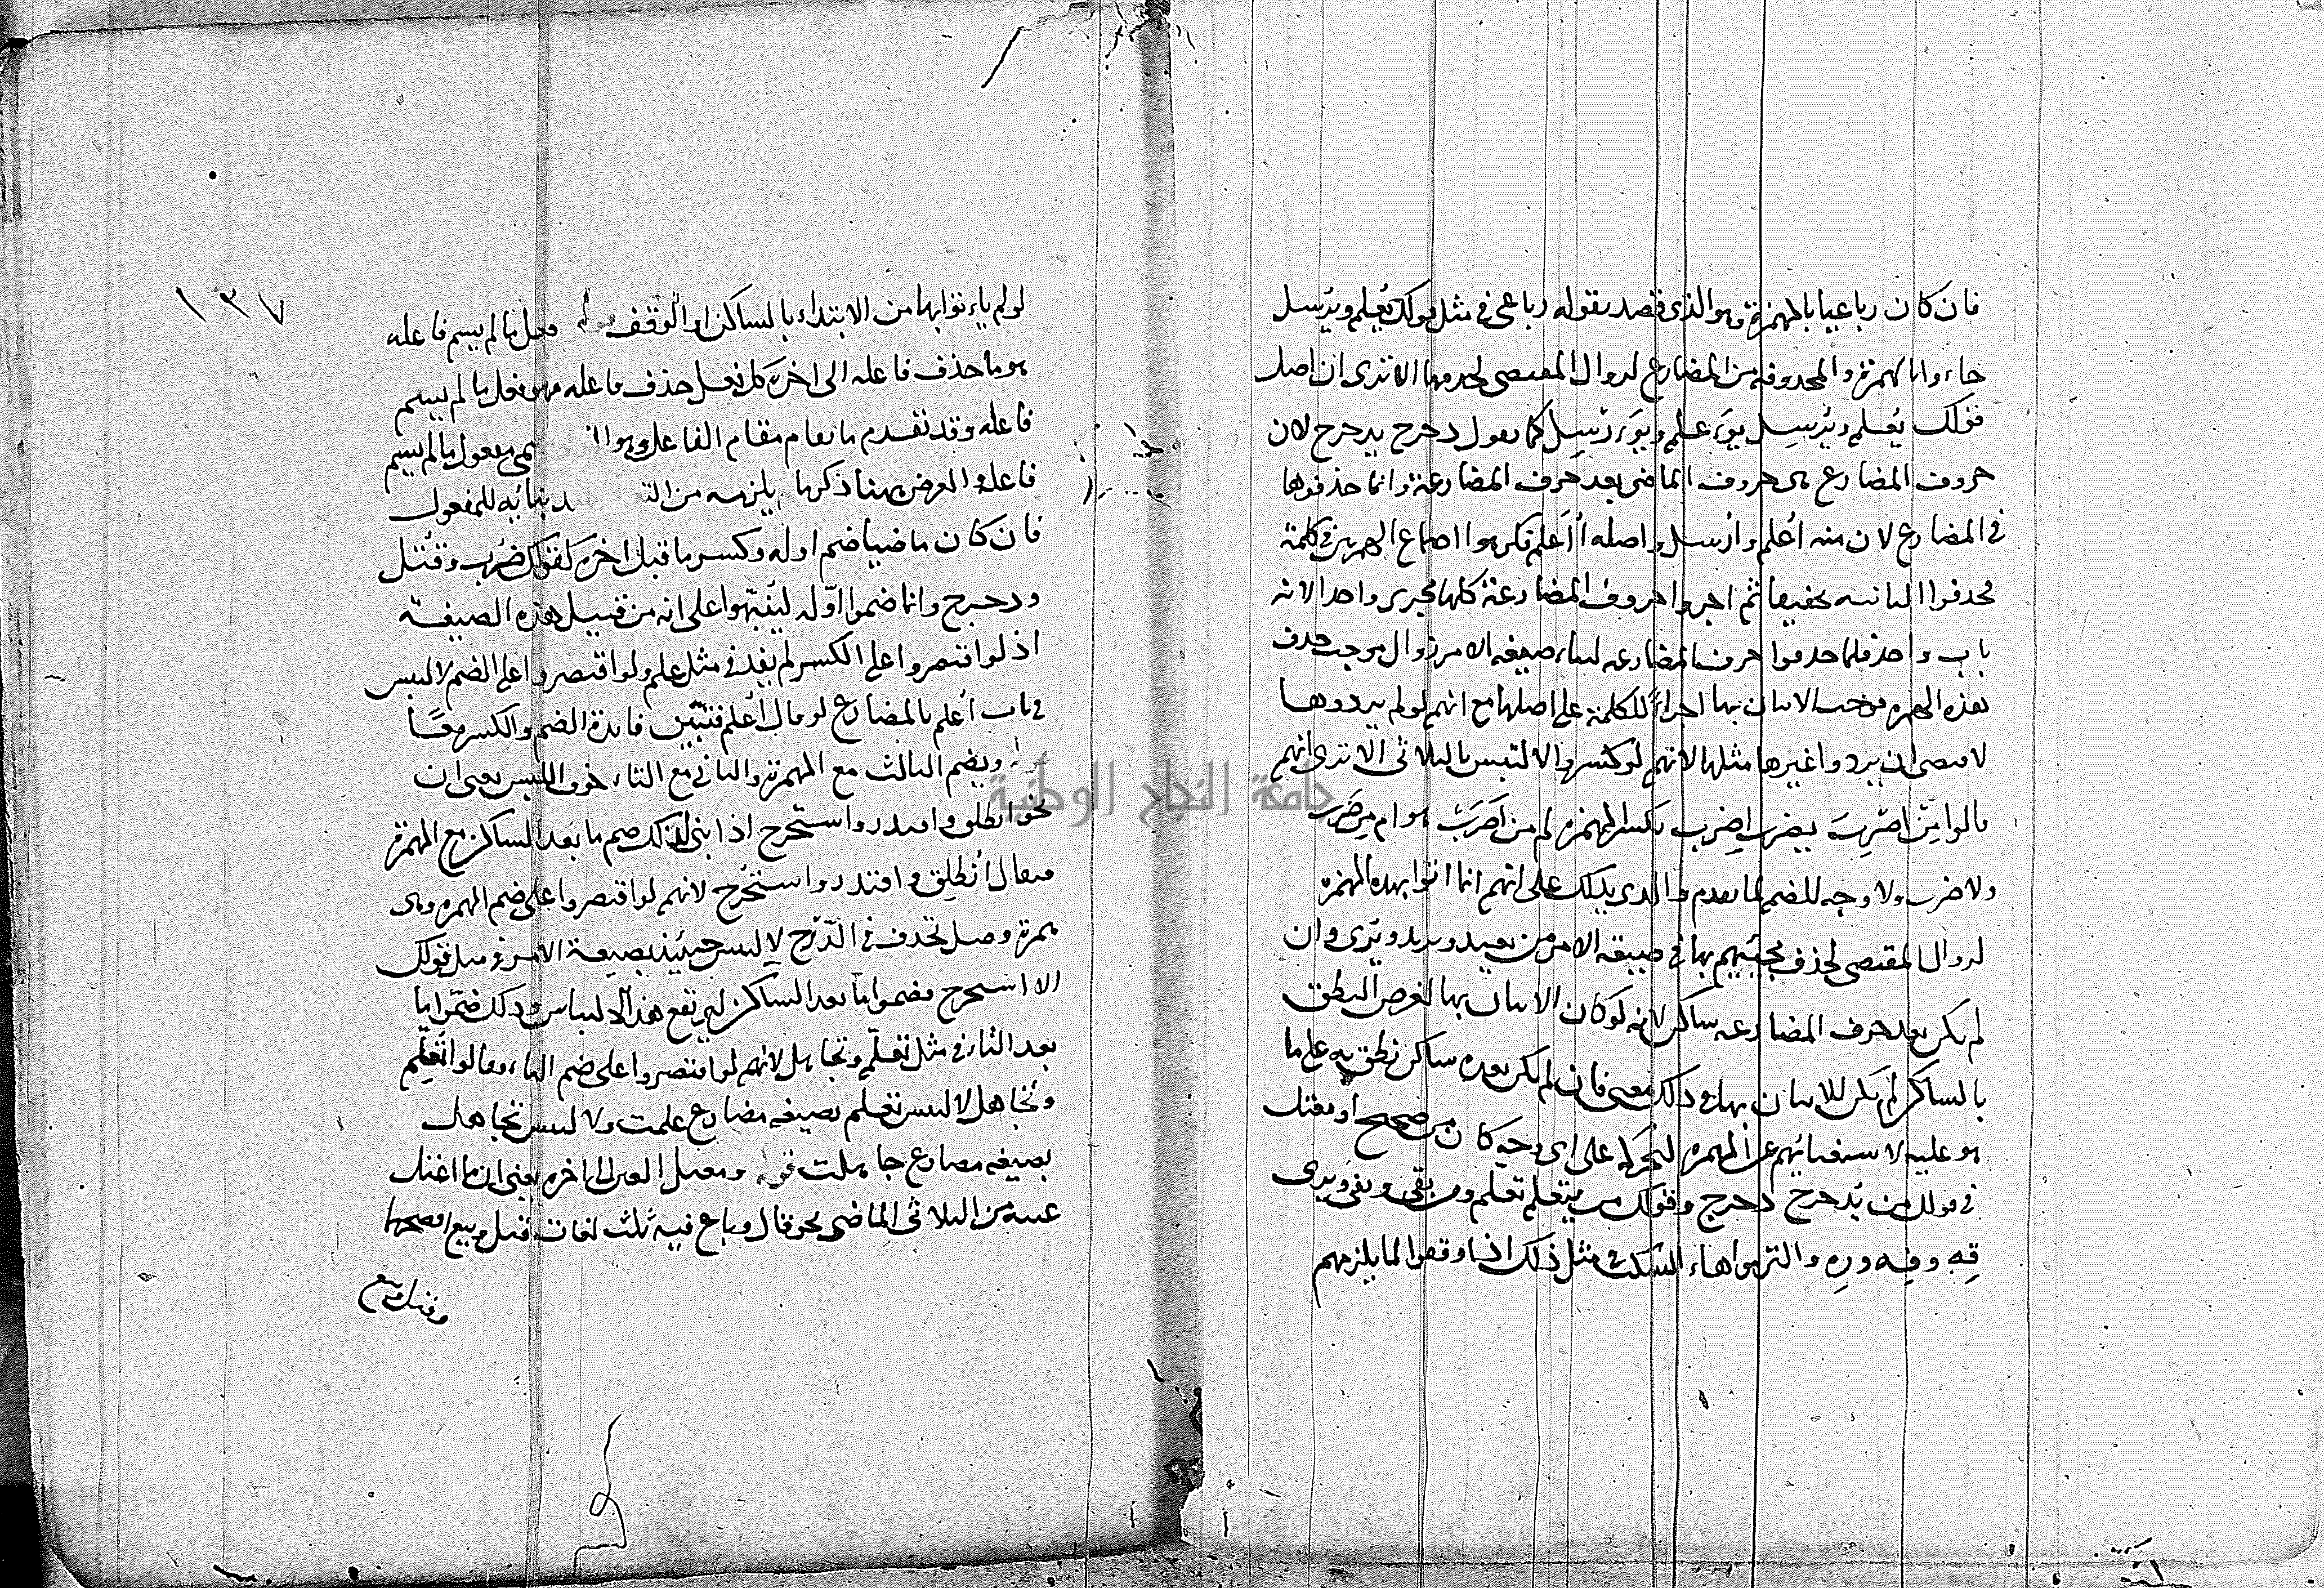 فان كان رباعيا بالهمزة وهو الذي قصد بقوله رباعي في مثل قولك يُعلم ويُرسل
جاءوا بالهمزة المحذوفة من المضارع لزوال المقتضي لحذفها الا ترى ان اصل
قولك يُعلم ويُرسل يؤعلم ويؤرسل كما تقول دحرج يدحرج لان
حروف المضارع هي حروف الماضي بعد حرف المضارعة وانما حذفوها
في المضارع لان منه أعلم وأرسل واصله أأعلم فكرهوا اجتماع الهمزتين في كلمة
فحذفوا الثانية تخفيفا ثم اجروا حروف المضارعة كلها مجرى واحدا لانه
باب واحد فلما حذفوا حرف المضارعة لبناء صيغة الامر زال موجب حذف
هذه الهمزة فوجب الاتيان بها اجراءً للكلمة على اصلها مع انهم لو لم يردوها
لاقتضى ان يردوا غيرها مثلها لانهم لو كسروا لالتبس بالثلاثي الا ترى انهم
قالوا من اضرب يضرب اضرب بكسر الهمزة لم من أضرب هو ام من ضرب
ولا ضرب ولا وجه للضم لما تقدم والذي يدلك على انهم انما اتوا بهذه الهمزة
لزوال المقتضي لحذف مجيئهم بها في صيغة الامر من يعيد ويريد ويُرى وان
لم يكن بعد حرف المضارعة ساكن لانه لو كان الاتيان بها لغرض النطق
بالساكن لم يكن للاتيان بها في ذلك معنى فان لم يكن بعده ساكن نطق به على ما
هو عليه لاستغنائهم عن الهمزة لتحركه على اي وجه كان من صحيح او معتل
في قولك من يُدحرج دحرج وقولك من يتعلم تعلم ومن يقي ويفي ويرى
قِه وفِه ورِه والتزموا هاء السكت في مثل ذلك اذا وقفوا لما يلزمهم
١٣٧
لو لم ياءتوا بها من الابتداء بالساكن او الوقف قوله فعل ما لم يسم فاعله
هو ما حذف فاعله الى اخره كل فعل حذف فاعله فهو فعل ما لم يسم
فاعله وقد تقدم ما يقام مقام الفاعل وهو الذي يسمى مفعول ما لم يسم
فاعله والغرض ههنا ذكر ما يلزمه من عند بنائه للمفعول
فان كان ماضيا ضم اوله وكسر ما قبل اخره كقولك ضُرب وقُتل
ودحرج وانما ضموا اوّله لينبّهوا على انه من قبيل هذه الصيغة
اذ لو اقتصروا على الكسر لم يفد في مثل علم ولو اقتصروا على الضم لالتبس
في باب أعلم بالمضارع لو قال أُعلم فتبيّن فائدة الضم والكسر معًا
قوله ويضم الثالث مع الهمزة والثاني مع التاء خوف اللبس يعني ان
نحو انطلق واقتدر واستخرج اذا بني لذلك ضم ما بعد الساكن مع الهمزة
فيقال أنطلق واقتدر واستُخرج لانهم لو اقتصروا على ضم الهمزة وهي
همزة وصل تحذف في الدّرج لالتبس حينئذ بصيغة الامر في مثل قولك
الا استخرج فضموا ما بعد الساكن ليرتفع هذا الالباس وكذلك ضمّوا ما
بعد التاء في مثل تعلّم وتجاهل لانهم لو اقتصروا على ضم التاء وقالوا تُعلّم
وتُجاهل لالتبس تعلم بصيغة مضارع علمت ولالتبس تجاهل
بصيغة مضارع جاهلت قوله ومعتل العين الى اخره يعني ان ما اعتل
عينه من الثلاثي الماضي نحو قال وباع فيه ثلث لغات قيل وبيع افصحها